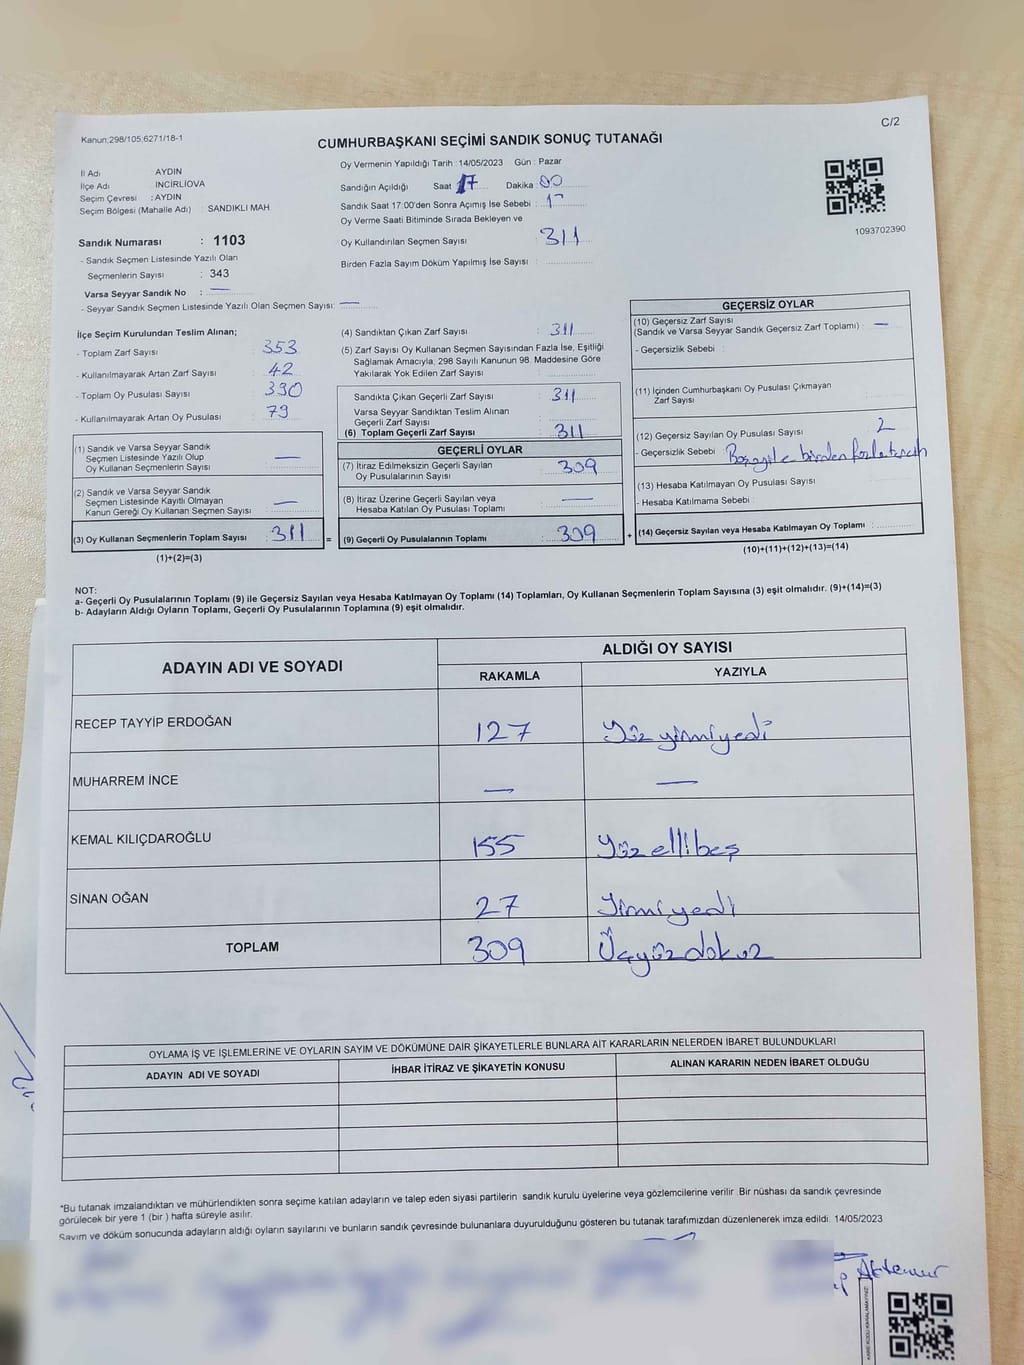 Kanun:298/105;6271/18-1
C/2
CUMHURBAŞKANI SEÇİMİ SANDIK SONUÇ TUTANAĞI
İl Adı AYDIN
İlçe Adı : İNCİRLİOVA
Seçim Çevresi : AYDIN
Seçim Bölgesi (Mahalle Adı) : SANDIKLI MAH
Sandık Numarası : 1103
- Sandık Seçmen Listesinde Yazılı Olan
Seçmenlerin Sayısı : 343
Varsa Seyyar Sandık No : —
- Seyyar Sandık Seçmen Listesinde Yazılı Olan Seçmen Sayısı: —
Oy Vermenin Yapıldığı Tarih : 14/05/2023 Gün : Pazar
Sandığın Açıldığı Saat 17 Dakika : 00
Sandık Saat 17:00'den Sonra Açımış İse Sebebi :
Oy Verme Saati Bitiminde Sırada Bekleyen ve
Oy Kullandırılan Seçmen Sayısı : 311
Birden Fazla Sayım Döküm Yapılmış İse Sayısı :
1093702390
İlçe Seçim Kurulundan Teslim Alınan;
- Toplam Zarf Sayısı : 353
- Kullanılmayarak Artan Zarf Sayısı : 42
- Toplam Oy Pusulası Sayısı : 390
- Kullanılmayarak Artan Oy Pusulası : 79
(1) Sandık ve Varsa Seyyar Sandık
Seçmen Listesinde Yazılı Olup
Oy Kullanan Seçmenlerin Sayısı : —
(2) Sandık ve Varsa Seyyar Sandık
Seçmen Listesinde Kayıtlı Olmayan
Kanun Gereği Oy Kullanan Seçmen Sayısı : —
(3) Oy Kullanan Seçmenlerin Toplam Sayısı : 311 =
(1)+(2)=(3)
(4) Sandıktan Çıkan Zarf Sayısı : 311
(5) Zarf Sayısı Oy Kullanan Seçmen Sayısından Fazla İse, Eşitliği
Sağlamak Amacıyla, 298 Sayılı Kanunun 98. Maddesine Göre
Yakılarak Yok Edilen Zarf Sayısı :
Sandıkta Çıkan Geçerli Zarf Sayısı : 311
Varsa Seyyar Sandıktan Teslim Alınan
Geçerli Zarf Sayısı :
(6) Toplam Geçerli Zarf Sayısı : 311
GEÇERLİ OYLAR
(7) İtiraz Edilmeksizin Geçerli Sayılan
Oy Pusulalarının Sayısı : 309
(8) İtiraz Üzerine Geçerli Sayılan veya
Hesaba Katılan Oy Pusulası Toplamı : —
(9) Geçerli Oy Pusulalarının Toplamı : 309 +
GEÇERSİZ OYLAR
(10) Geçersiz Zarf Sayısı
(Sandık ve Varsa Seyyar Sandık Geçersiz Zarf Toplamı) : —
- Geçersizlik Sebebi :
(11) İçinden Cumhurbaşkanı Oy Pusulası Çıkmayan
Zarf Sayısı :
(12) Geçersiz Sayılan Oy Pusulası Sayısı : 2
- Geçersizlik Sebebi : birden fazla tercih
(13) Hesaba Katılmayan Oy Pusulası Sayısı :
- Hesaba Katılmama Sebebi :
(14) Geçersiz Sayılan veya Hesaba Katılmayan Oy Toplamı :
(10)+(11)+(12)+(13)=(14)
NOT:
a- Geçerli Oy Pusulalarının Toplamı (9) ile Geçersiz Sayılan veya Hesaba Katılmayan Oy Toplamı (14) Toplamları, Oy Kullanan Seçmenlerin Toplam Sayısına (3) eşit olmalıdır. (9)+(14)=(3)
b- Adayların Aldığı Oyların Toplamı, Geçerli Oy Pusulalarının Toplamına (9) eşit olmalıdır.
ADAYIN ADI VE SOYADI
ALDIĞI OY SAYISI
RAKAMLA YAZIYLA
RECEP TAYYİP ERDOĞAN 127 Yüz yirmi yedi
MUHARREM İNCE — —
KEMAL KILIÇDAROĞLU 155 Yüz elli beş
SİNAN OĞAN 27 Yirmi yedi
TOPLAM 309 Üçyüz dokuz
OYLAMA İŞ VE İŞLEMLERİNE VE OYLARIN SAYIM VE DÖKÜMÜNE DAİR ŞİKAYETLERLE BUNLARA AİT KARARLARIN NELERDEN İBARET BULUNDUKLARI
ADAYIN ADI VE SOYADI İHBAR İTİRAZ VE ŞİKAYETİN KONUSU ALINAN KARARIN NEDEN İBARET OLDUĞU
*Bu tutanak imzalandıktan ve mühürlendikten sonra seçime katılan adayların ve talep eden siyasi partilerin sandık kurulu üyelerine veya gözlemcilerine verilir. Bir nüshası da sandık çevresinde
görülecek bir yere 1 (bir) hafta süreyle asılır.
Sayım ve döküm sonucunda adayların aldığı oyların sayılarını ve bunların sandık çevresinde bulunanlara duyurulduğunu gösteren bu tutanak tarafımızdan düzenlenerek imza edildi. 14/05/2023
Aktemur